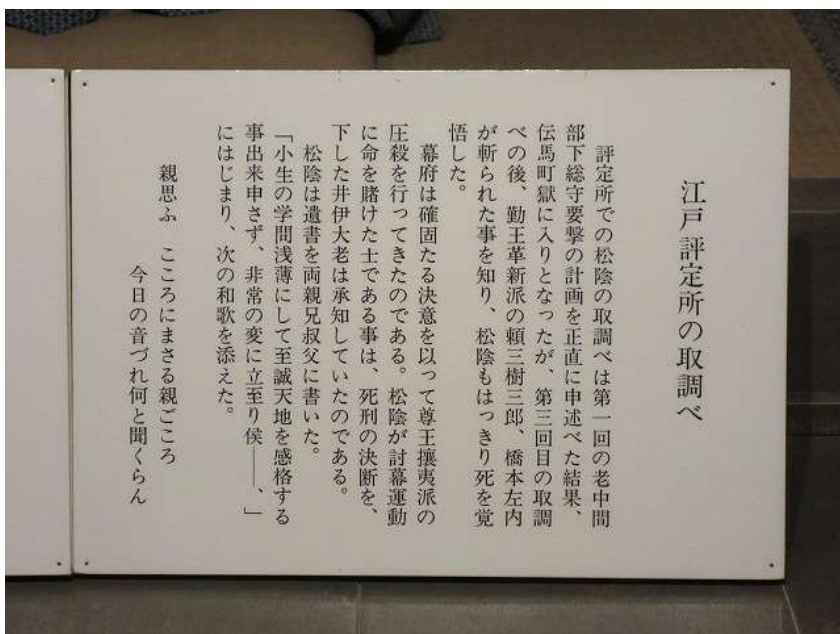 江戸評定所の取調べ
評定所での松陰の取調べは第一回の老中間
部下総守要撃の計画を正直に申述べた結果、
伝馬町獄に入りとなったが、第三回目の取調
べの後、勤王革新派の頼三樹三郎、橋本左内
が斬られた事を知り、松陰もはっきり死を覚
悟した。
幕府は確固たる決意を以って尊王攘夷派の
圧殺を行ってきたのである。松陰が討幕運動
に命を賭けた士である事は、死刑の決断を、
下した井伊大老は承知していたのである。
松陰は遺書を両親兄叔父に書いた。
「小生の学問浅薄にして至誠天地を感格する
事出来申さず、非常の変に立至り候――、」
にはじまり、次の和歌を添えた。
親思ふ こころにまさる親ごころ
今日の音づれ何と聞くらん